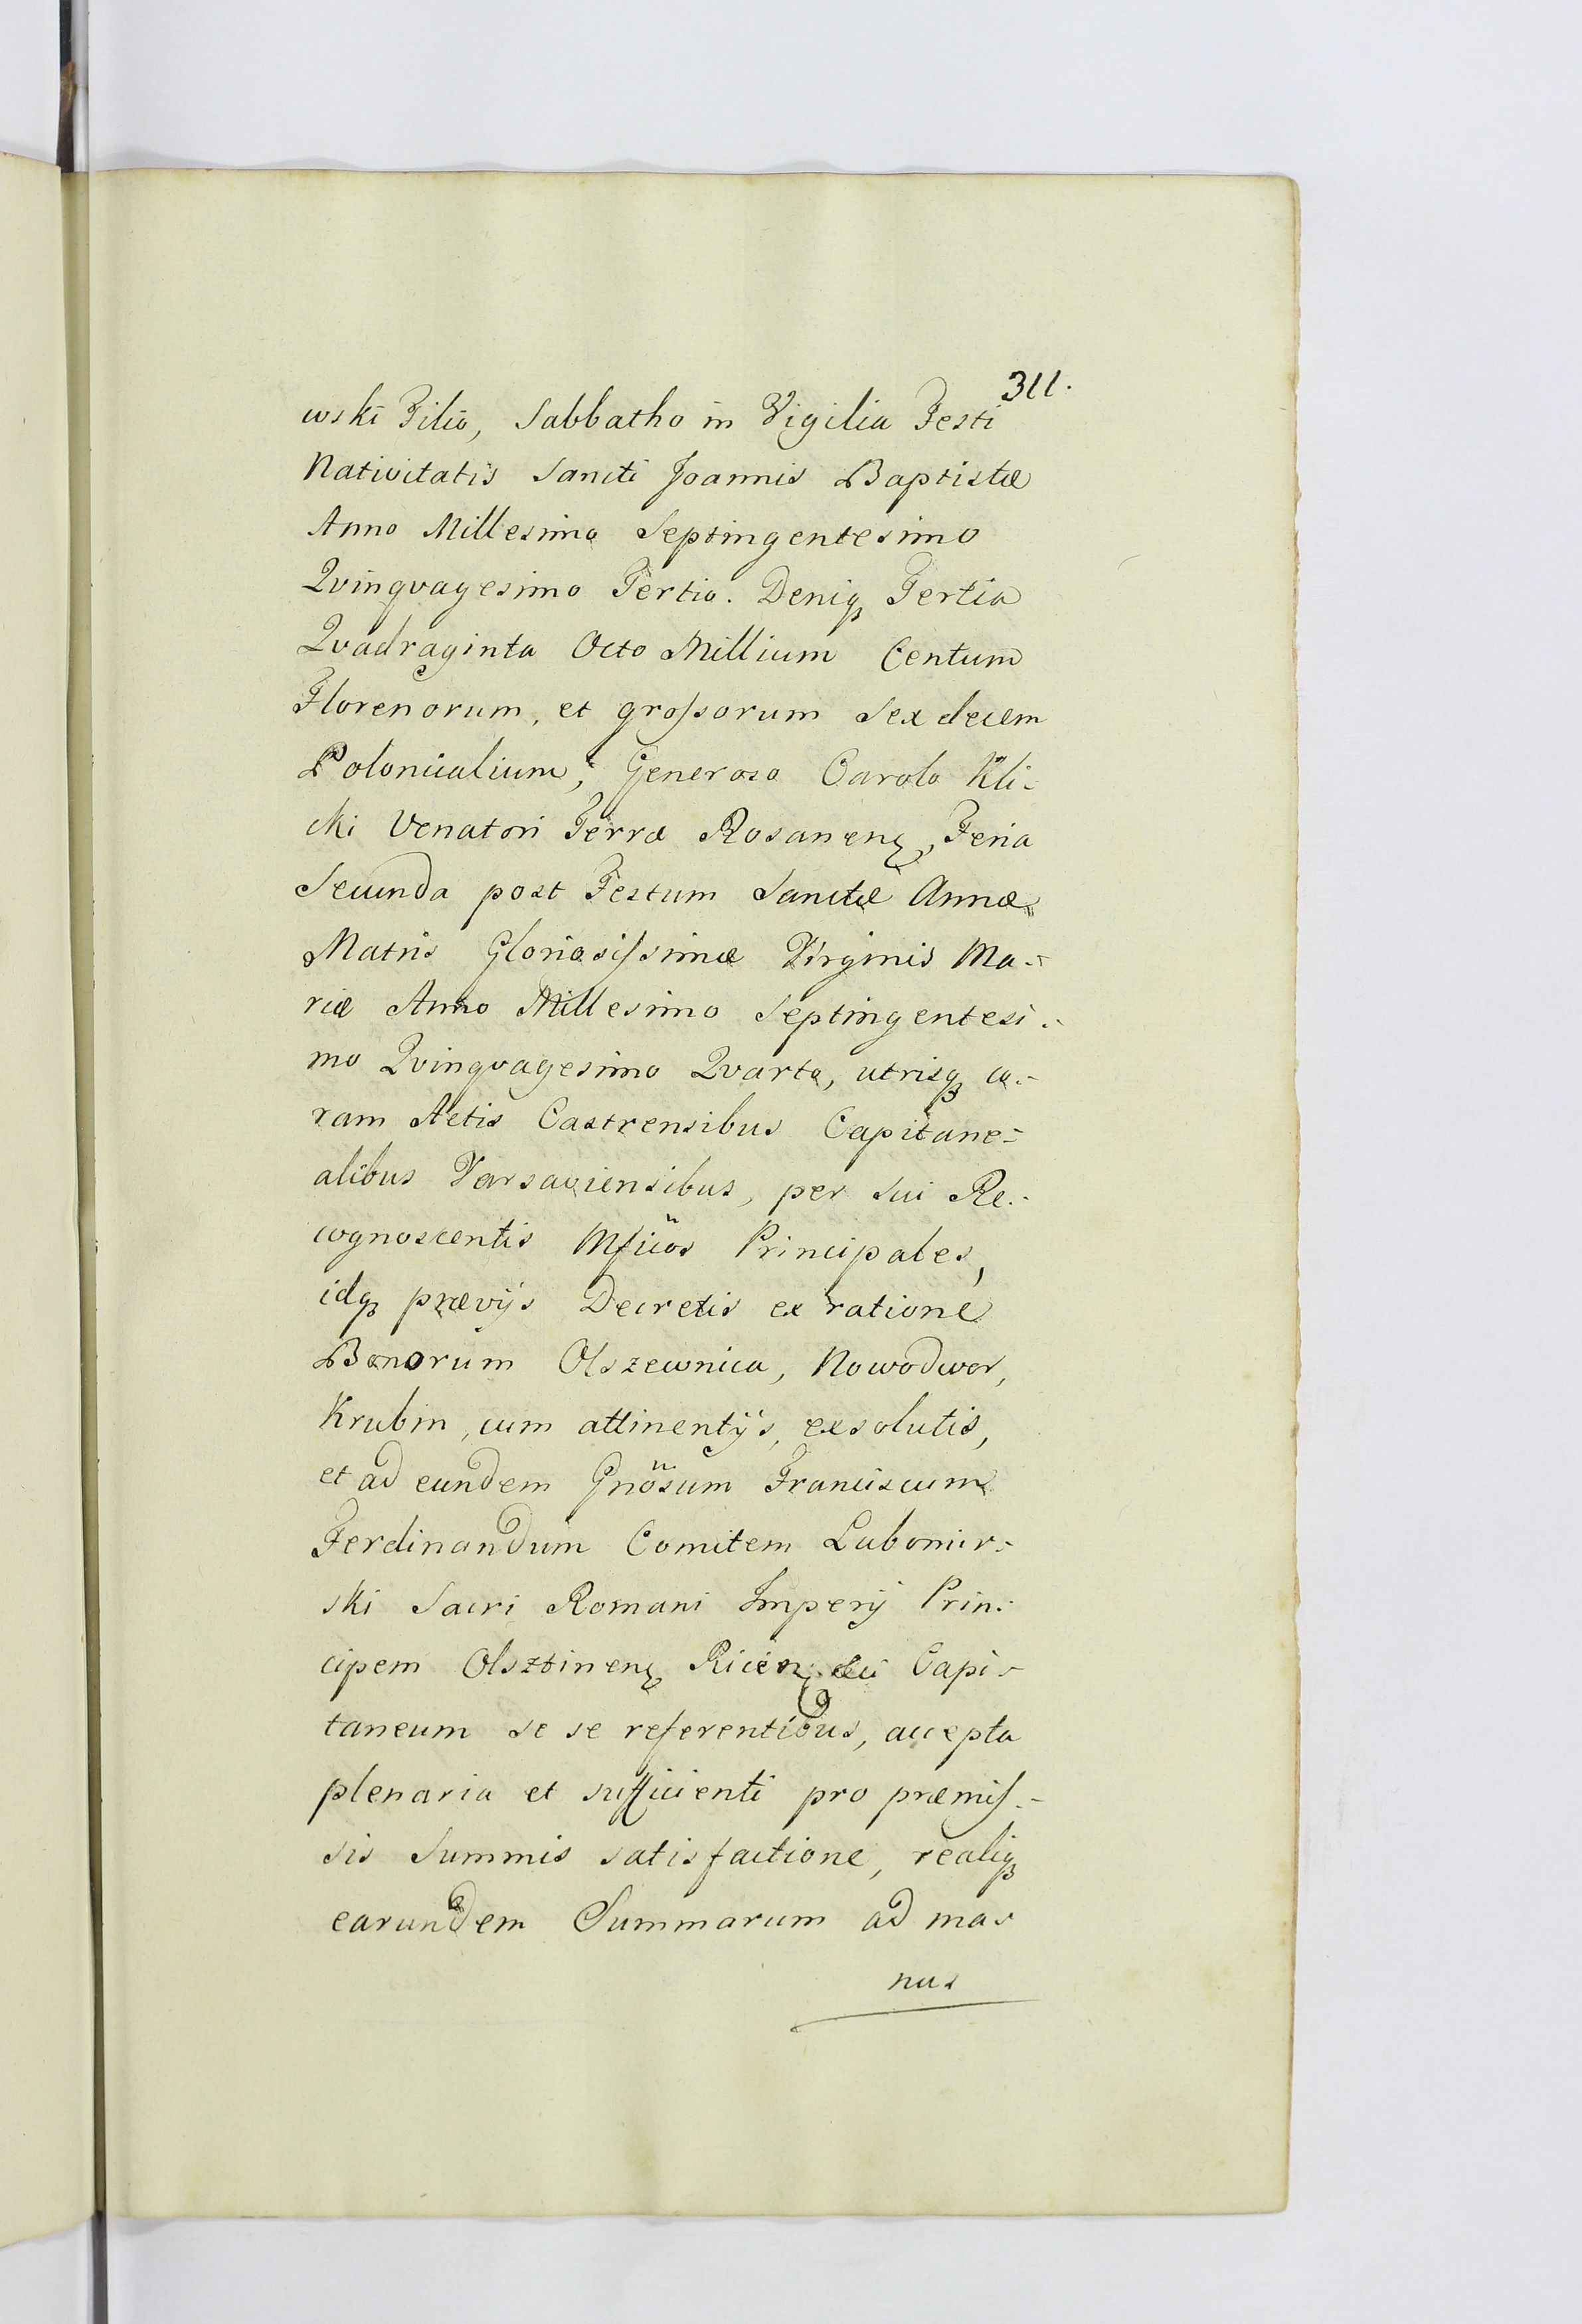 311.
wski Filio, Sabbatho in Vigilia Festi
Nativitatis Sancti Joannis Baptistæ
Anno Millesimo Septingentesimo
Qvinqvagesimo Tertio. Deniqꝫ Tertia
Qvadraginta Octo Millium Centum
Florenorum, et groſsorum Sexdecem
Polonicalium, Generoso Carolo Kli-
cki Venatori Terræ Rosanenꝫ, Feria
Secunda post Festum Sanctæ Annæ
Matris Gloriosiſsimæ Virginis Ma-
riæ Anno Millesimo Septingentesi-
mo Qvinqvagesimo Qvarto, utrisqꝫ co-
ram Actis Castrensibus Capitane-
alibus Varsaviensibus, per sui Re-
cognoscentis Mficos Principales,
idqꝫ prævijs Decretis ex ratione
Bonorum Olszewnica, Nowodwor,
Krubin, cum attinentijs, exsolutis,
et ad eundem Gnösum Franciscum
Ferdinandum Comitem Lubomir-
ski Sacri Romani Imperij Prin-
cipem Olsztinenꝫ Ricenꝫ Capi-
taneum se se referentibus, accepta
plenaria et sufficienti pro præmiſ-
sis Summis satisfactione, realiqꝫ
earundem Summarum ad ma-
nus